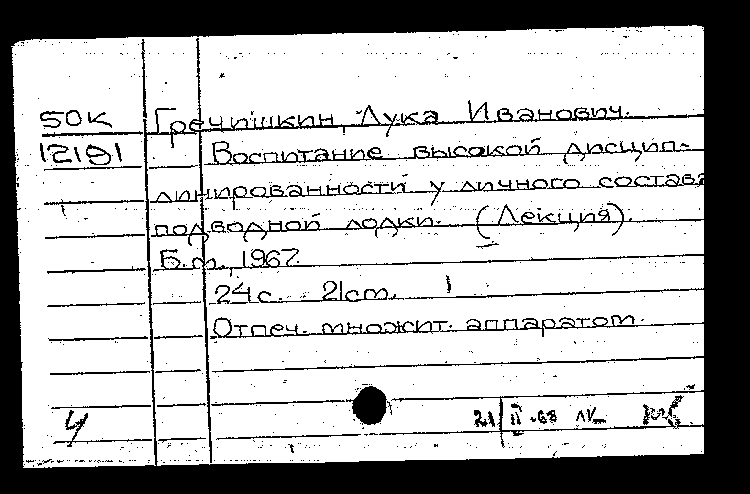 50К Гречишкин, Лука Иванович.
12181 Воспитание высокой дисцип-
линированности у личного состава
подводной лодки. (Лекция).
Б.м., 1967.
24с. 21см. 1
Отпеч. множит. аппаратом.
У 21/II-68